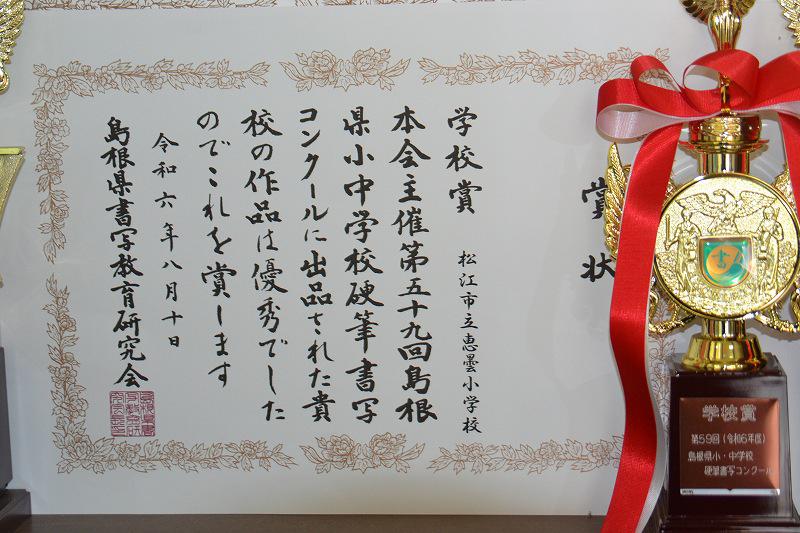 賞状
学校賞
松江市立恵曇小学校
本会主催第五十九回島根
県小中学校硬筆書写
コンクールに出品された貴
校の作品は優秀でした
のでこれを賞します
令和六年八月十日
島根県書写教育研究会
学校賞
第59回(令和6年度)
島根県小・中学校
硬筆書写コンクール